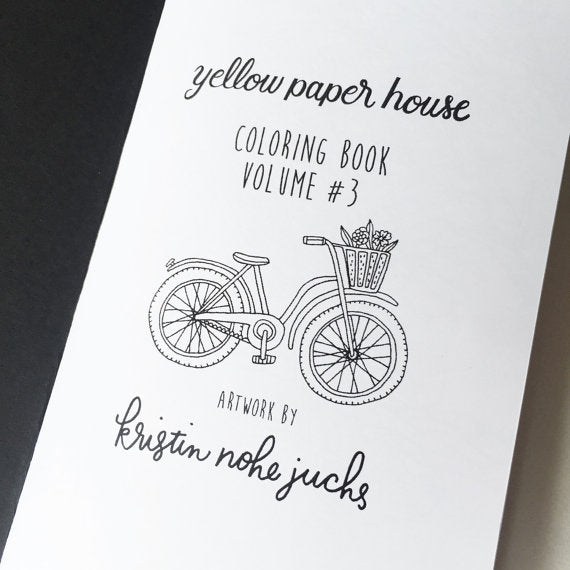 yellow paper house
COLORING BOOK
VOLUME #3
ARTWORK BY
kristin nohe juchs